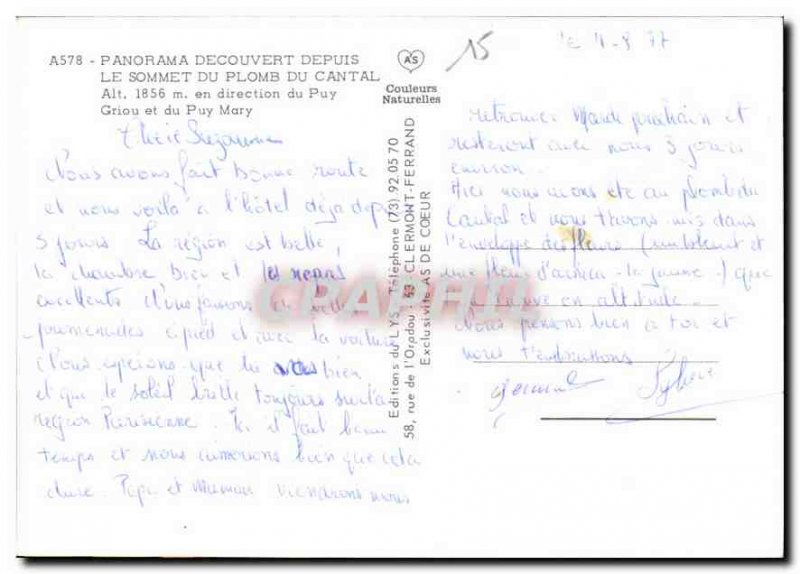 A578 - PANORAMA DECOUVERT DEPUIS
LE SOMMET DU PLOMB DU CANTAL
Alt. 1856 m. en direction du Puy
Griou et du Puy Mary
AS
Couleurs
Naturelles
15
le 4-8 77
Chère Suzanne
Nous avons fait bonne route
et nous voilà à l'hôtel déjà depuis
3 jours. La région est belle,
la chambre bien et les repas
excellents. Nous faisons de belles
promenades à pied et avec la voiture
Nous espérons que tu vas bien
et que le soleil brille toujours sur la
région Parisienne. Ici il fait beau
temps et nous aimerions bien que cela
dure. Papa et Maman viendront nous
Editions du LYS, Téléphone (73) 92.05.70
58, rue de l'Oradou : 63 - CLERMONT-FERRAND
Exclusivité AS DE COEUR
retrouver Mardi prochain et
resteront avec nous 3 jours
environ.
Hier nous avons été au plomb du
Cantal et nous t'avons mis dans
l'enveloppe des fleurs (
une fleur d'arnica - la jaune -) que
l'on trouve en altitude.
Nous pensons bien à toi et
nous t'embrassons
Sylvie
CPAPHIL